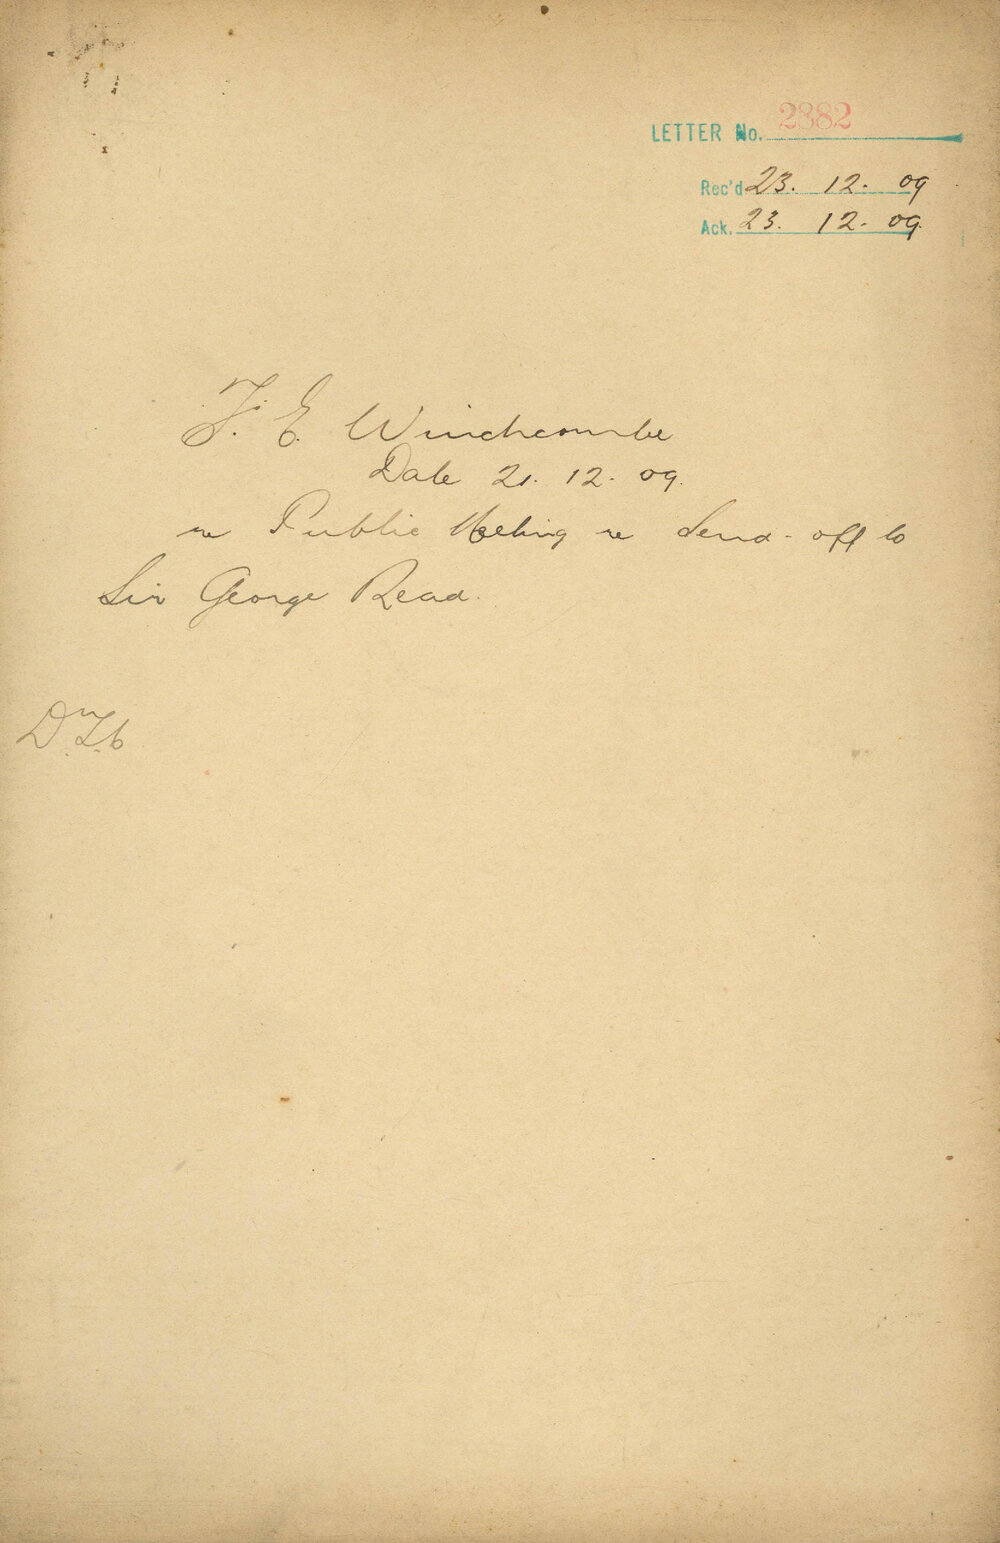 LETTER No. 2382
Rec'd 23. 12. 09
Ack. 23. 12. 09.
F. E. Winchcombe
Date 21. 12. 09.
re Public Meeting re Send-off to
Sir George Read.